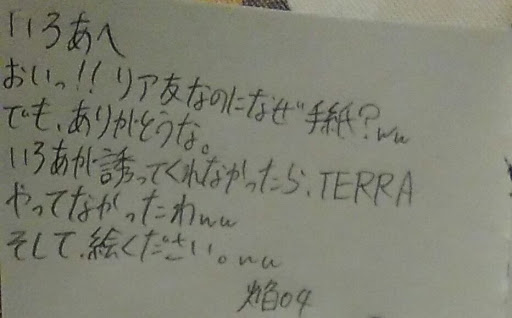 いろあへ
おいっ!!リア友なのになぜ手紙?ww
でも、ありがとうな。
いろあが誘ってくれなかったら、TERRA
やってなかったわww
そして、絵ください。ww
焔04